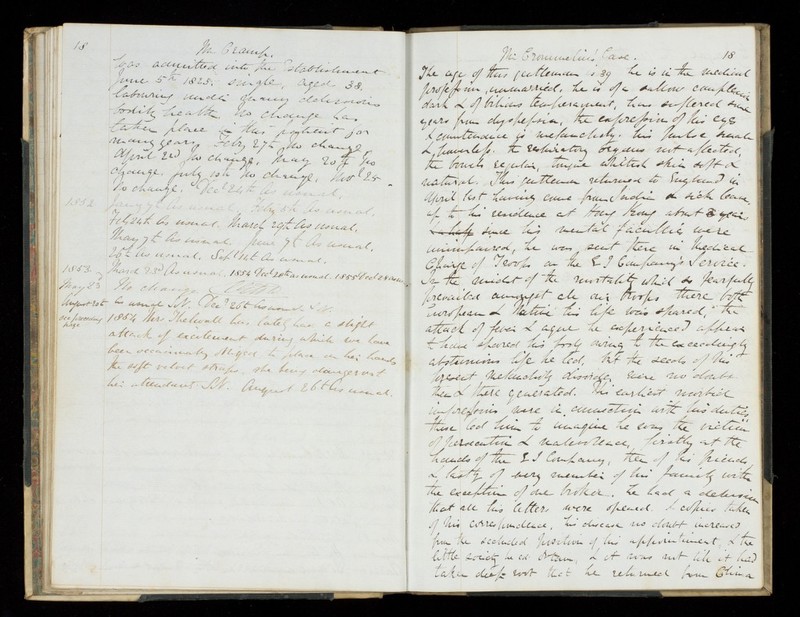 18
Mr Cramp.
was admitted into the Establishment
June 5th 1828. single, aged 38.
labouring under gloomy delusions
bodily health No change has
taken place in this patient for
many years. Feby 27th No change
April 2nd No change, May 20th No
change. July 15th No change. Novr 25
No change. Decr 24th As usual.
1852 Jany 9th As usual. Feby 8th As usual.
Feb 24th As usual. March 29th As usual.
May 7th As usual. June 9th As usual.
As usual. Septr 1st As usual.
1853. March 23rd As usual. 1854 20th as usual. 1855
May 2nd No change
August 26th As usual
see preceding page
1854 Mrs Thelwall has lately had a slight
attack of excitement during which we have
been occasionally obliged to place on her hands
the soft velvet straps, she being dangerous to
her attendant. August 26th as usual.
18
Mr Crommelin's Case.
The age of this gentleman is 39 he is in the medical
profession, unmarried. he is of a sallow complexion
dark & of bilious temperament, has suffered some
years from dyspepsia, the expression of his eye
& countenance is melancholy. his pulse small
& powerless. the respiratory organs not affected,
the bowels regular, tongue whitish skin soft &
natural. This gentleman returned to England in
April last having come from India on sick leave,
up to his residence at Hong Kong about 3 years
since his mental faculties were
unimpaired, he was sent there in Medical
Charge of Troops in the E I Company's Service.
In the midst of the mortality which so fearfully
prevailed amongst all our troops there both
European & Native his life was spared, the
attack of fever & ague he experienced appears
to have spared his body owing to the exceedingly
abstemious life he led, but the seeds of his
present melancholy disorder were no doubt
then & there generated. His earliest morbid
impressions were in connection with his duties,
these led him to imagine he was the victim
of persecution & malevolence, firstly at the
hands of the E I Company, then of his friends,
& lastly of every member of his family with
the exception of one brother. he had a delusion
that all his letters were opened & copies taken
of his correspondence. his disease no doubt increased
from the secluded position of his appointment, & the
little society he could obtain, & it was not till it had
taken deep root that he returned from China